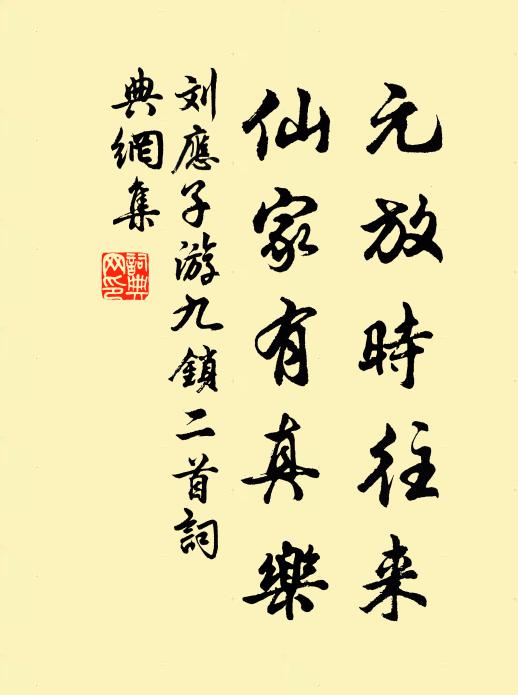 元放時往来
仙家有真樂
刘應子游九鎖二首詞
典網集
詞典
网印